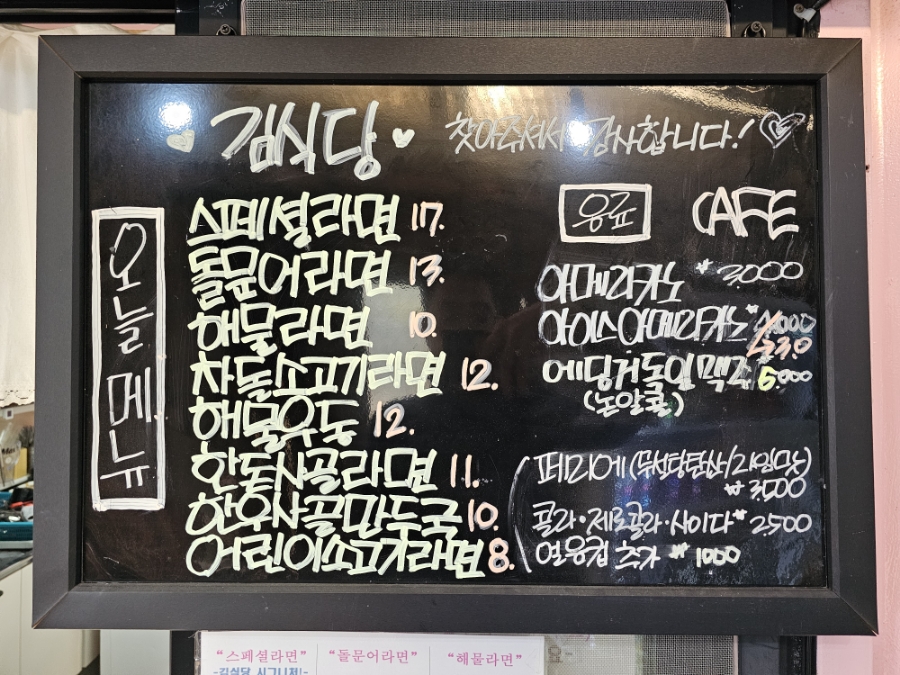 김식당 찾아주셔서 감사합니다!
오늘메뉴
스페셜라면 17.
돌문어라면 13.
해물라면 10.
차돌소고기라면 12.
해물우동 12.
한돈사골라면 11.
한우사골만두국 10.
어린이소고기라면 8.
음료 CAFE
아메리카노 ₩ 3,000
아이스아메리카노 ₩
에딩거독일맥주 6,000
(논알콜)
페리에 (무설탕탄산/라임맛)
₩ 3,500
콜라·제로콜라·사이다 ₩ 2,500
얼음컵 추가 ₩ 1000
"스페셜라면" "돌문어라면" "해물라면"
-김식당 시그니처!-